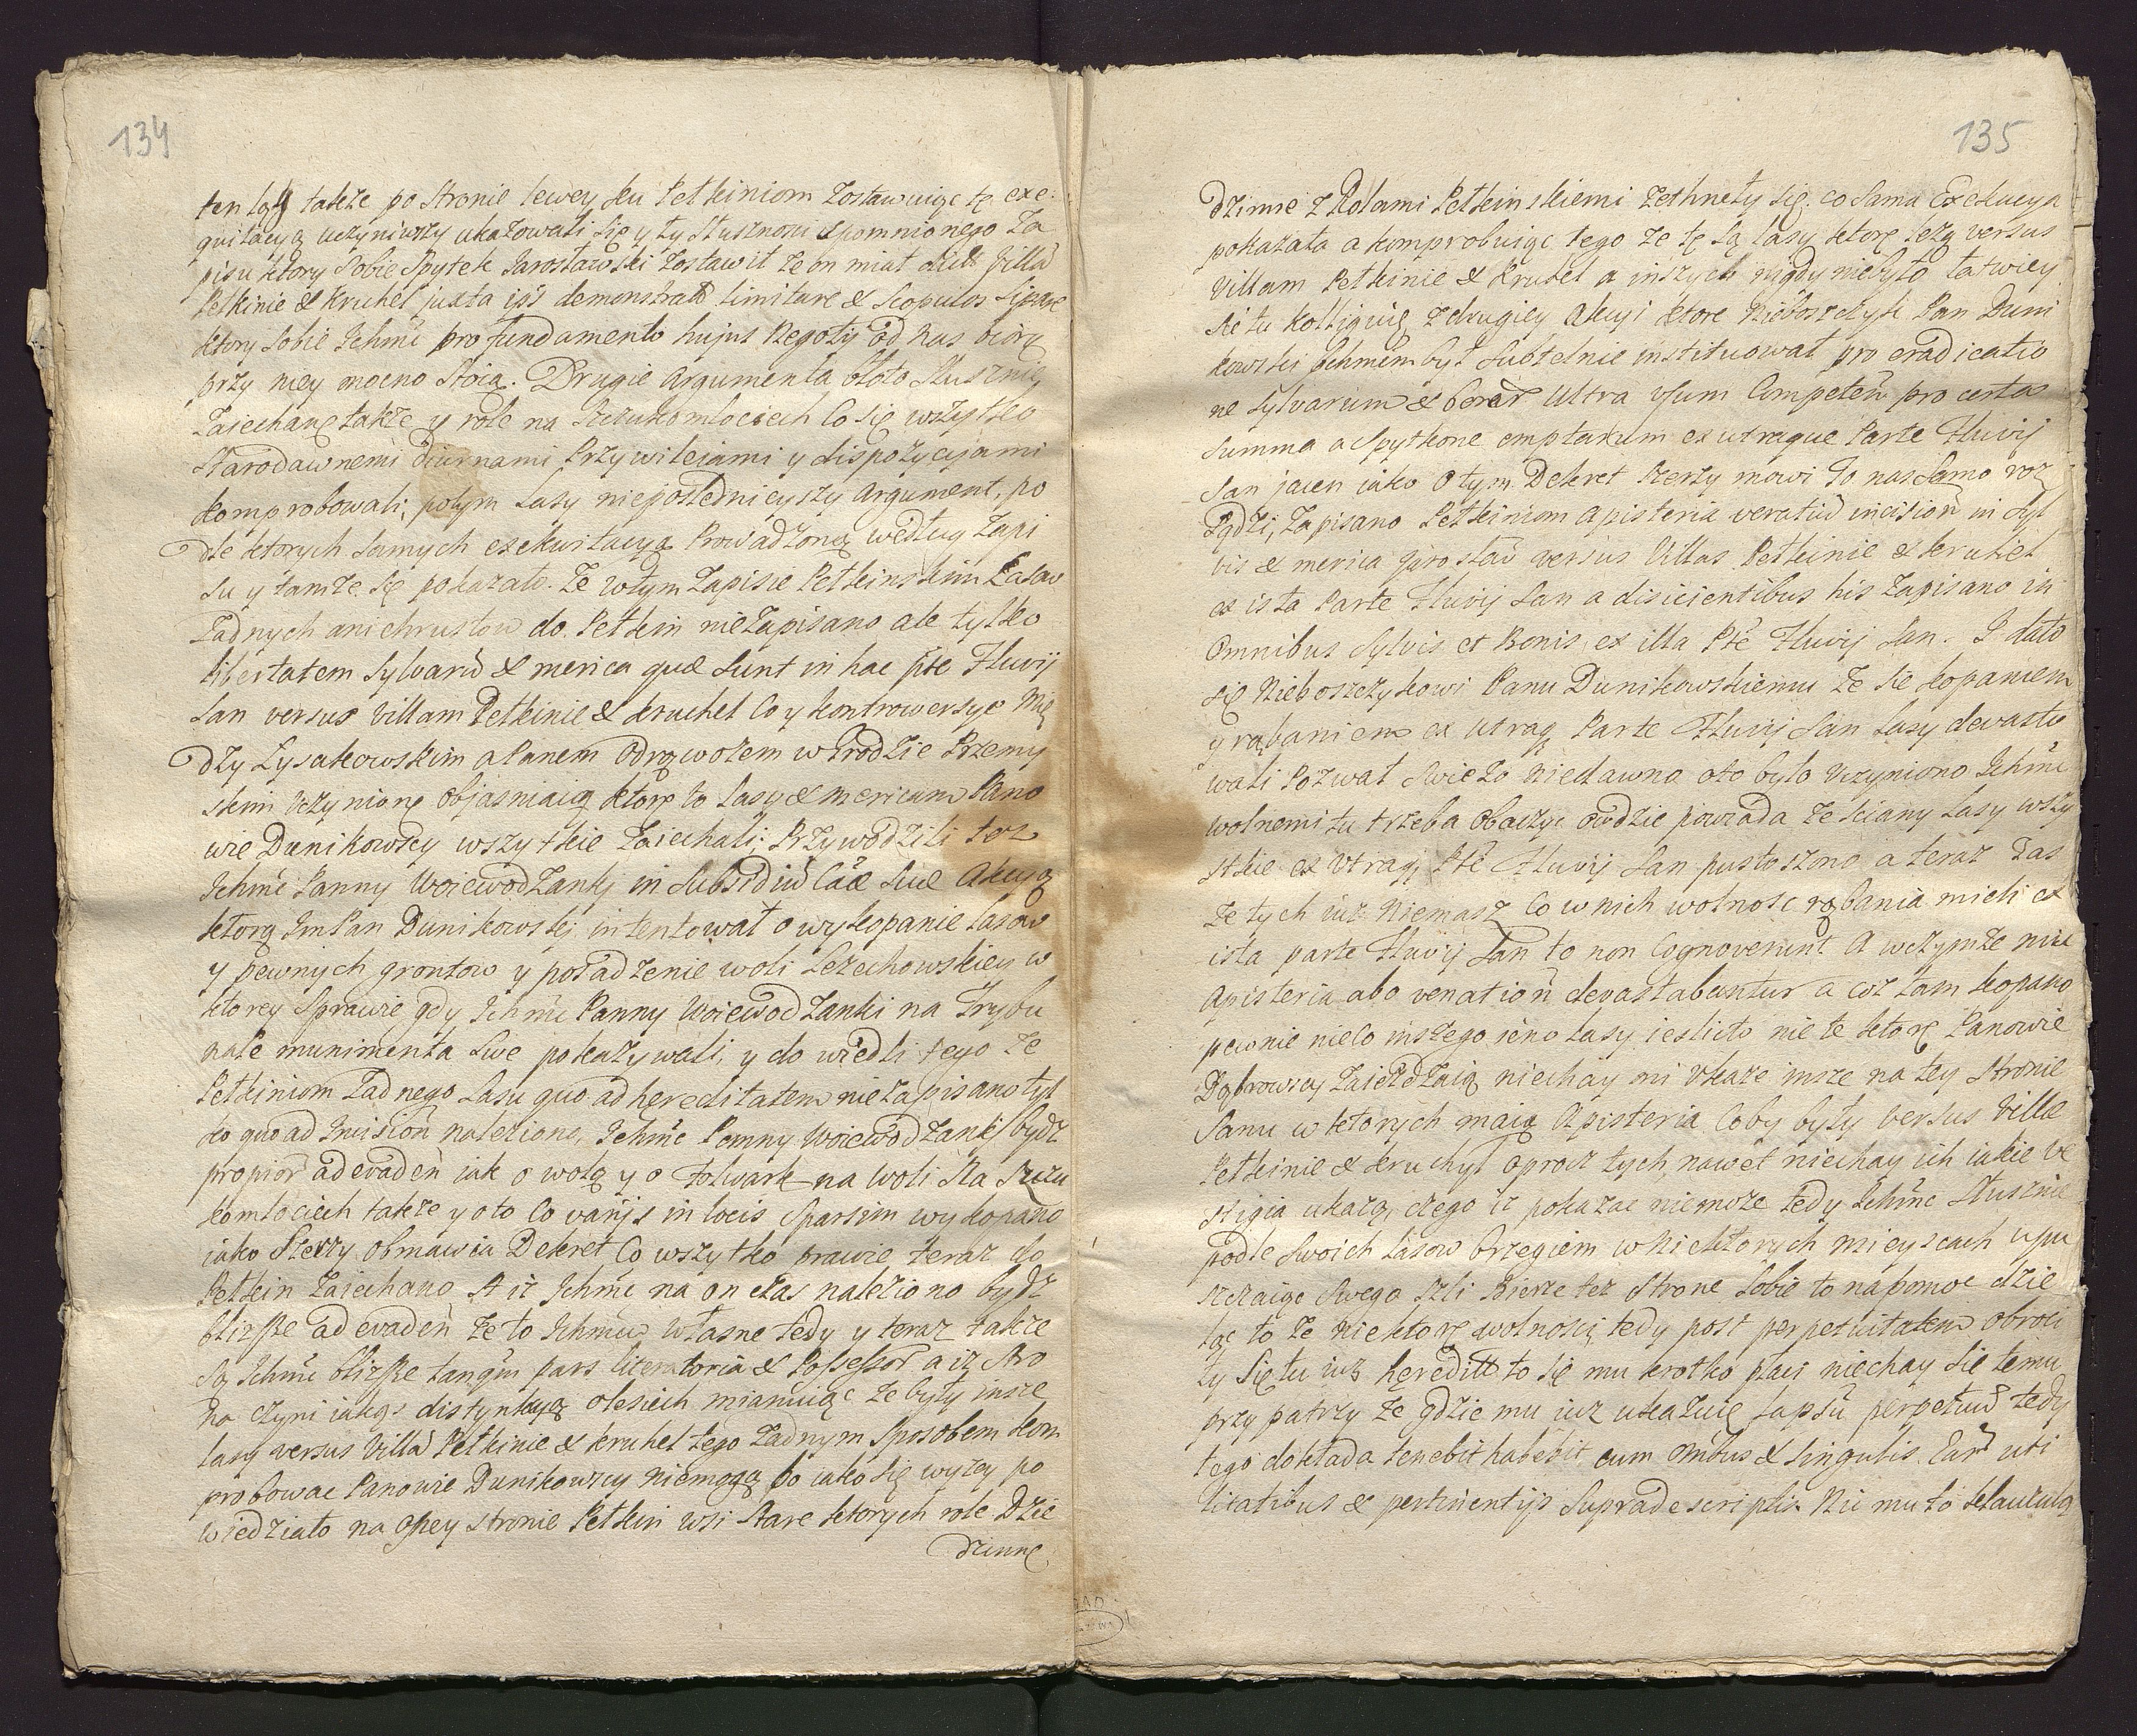 134
ten łąg także po Stronie lewey ku Pełkiniom zostawuiąc tę exe
quitacyą uczyniwszy ukazowali się y ty Słusznosci wspomnionego Za
pisu ktory Sobie Spytek Jarosławski zostawił ze on miał dict villa
Pełkinie & Kruhel juxta ips demonstratt limitare & Scopulos Sipare
ktory Sobie Ichmć pro fundamento hujus Negoty od nas biorą
przy niey mocno stoią. Drugie argumenta błoto Słusznie
Zaiechane także y role na Szczukomłociech Co się wszystko
Starodawnemi diurnami Przywileiami y dispozycyjami
komprobowali, potym Lasy niepoślednieyszy argument, po
dle ktorych samych exekwitacyą Prowadzoną według Zapi
su y tamże się pokazało. Ze w tym Zapisie Pełkinskim Lasow
Zadnych ani chrustow do Pełkin nie zapisano ale tylko
libertatem Sylvarū & merica quæ Sunt in hac pte Fluvij
San versus villam Pełkinie & Kruhel Co y kontrowersye Mię
dzy Łysakowskim a Panem Odrowożem w Grodzie Przemy
skim Uczynione objasniaią ktore to Lasy & mericam Pano
wie Dunikowscy wszytkie Zaiechali. Przywodzili tez
Ichmć Panny Woiewodzanki in Subsidiū Cāæ Suæ Akcyą
ktorą ImPan Dunikowski intentował o wykopanie Lasow
y pewnych grontow y posadzenie woli Leżechowskiey w
ktorey Sprawie gdy Ichmć Panny Woiewodzanki na Trybu
nale munimenta Swe pokazywali, y dowiedli tego ze
Pełkiniom Zadnego Lasu quo ad hereditatem nie zapisano tyl
ko quo ad Incision nalezione, Ichmć Panny Woiewodzanki bydz
propior ad evaden iak o wolą y o Folwark na woli Na Szczu
komłociech także y o to Co varijs in locis Sparsim wykopano
iako Szerzy obmawia Dekret Co wszytko prawie teraz do
Pełkin Zaiechano A iż Ichmć na on czas naleziono bydz
bliższe ad evaden ze to Ichmciow własne tedy y teraz także
są Ichmć bliższe tanqm pars literatoria & Possessor a iż Stro
na czyni iakąs distynkcyą o lesiech mianuiąc ze były insze
lasy versus Villā Pełkinie & Kruhel tego Zadnym Sposobem kom
probowac Panowie Dunikowscy niemogą bo iako się wyzey po
wiedziało na oney stronie Pełkin wsi Stare ktorych role Dzie
dzinne
135
Dzinne z Rolami Pełkinskiemi zethneły się. co Sama Exekucya
pokazała a komprobuiąc tego ze te są lasy ktore leżą versus
Villam Pełkinie & Kruhel a inszych nigdy niebyło łatwiey
się tu kolliguie z drugiey Akcyi ktore Nieboszczyk Pan Duni
kowski Ichmciom był Subtelnie instituował pro eradicatio
ne Sylvarum & borar Ultra Usum Competen pro certa
Summa a Spytkone emptarum ex utraque Parte Fluvij
San jacen iako o tym Dekret Szerzy mowi To nas Samo roz
sądzi, Zapisano Pełkiniom Apisteria veratiū incision in Syl
vis & merica Jarosław versus Villas Pełkinie & Kruhel
ex ista Parte Fluvij San a disicientibus his Zapisano in
Omnibus Sylvis et Bonis, ex illa Pte Fluvij San. Z dało
się Nieboszczykowi Panu Dunikowskiemu ze się kopaniem
y rąbaniem ex utraq Parte Fluvij San Lasy devasto
wali Pozwał Swiezo niedawno oto było Uczyniono Ichmć
wolnemi tu trzeba obaczyc owdzie powiada ze sciany Lasy wszy
stkie ex Utraq Pte Fluvij San pustoszono a teraz zas
ze tych iuz niemasz Co w nich wolnosc rąbania mieli ex
ista parte Fluvij San to non Cognoverunt A w czymze nie
Apisteria abo venation devastabantur a coz tam kopano
pewnie nieco inszego ieno Lasy iesli to nie te ktore Panowie
Dąbrowscy Zaiezdzaią niechay mi Ukaze insze na tey Stronie
Sanu w ktorych maią Apisteria Coby były versus Villæ
Pełkinie & Kruchyl oprocz tych, nawet niechay ich iakie ve
stigia ukazą, czego iz pokazac niemoze tedy Ichmć Słusznie
podle Swoich Lasow brzegiem w Niektorych mieyscach upu
szczaiąc Swego Szli Bierze tez Strone Sobie to napomoc dzie
ląc to ze Niektore wolności, tedy post perpetuitatem obroci
ły się tu iuz heredittt to się mu krotko płaci niechay się temu
przypatrzy ze gdzie mu iuz ukazuie Lapsū perpetuū tedy
tego dokłada tenebit habebit cum omibus & Singulis Eār uti
litatibus & pertinentijs Supradescriptis Nie mu to klauzulą